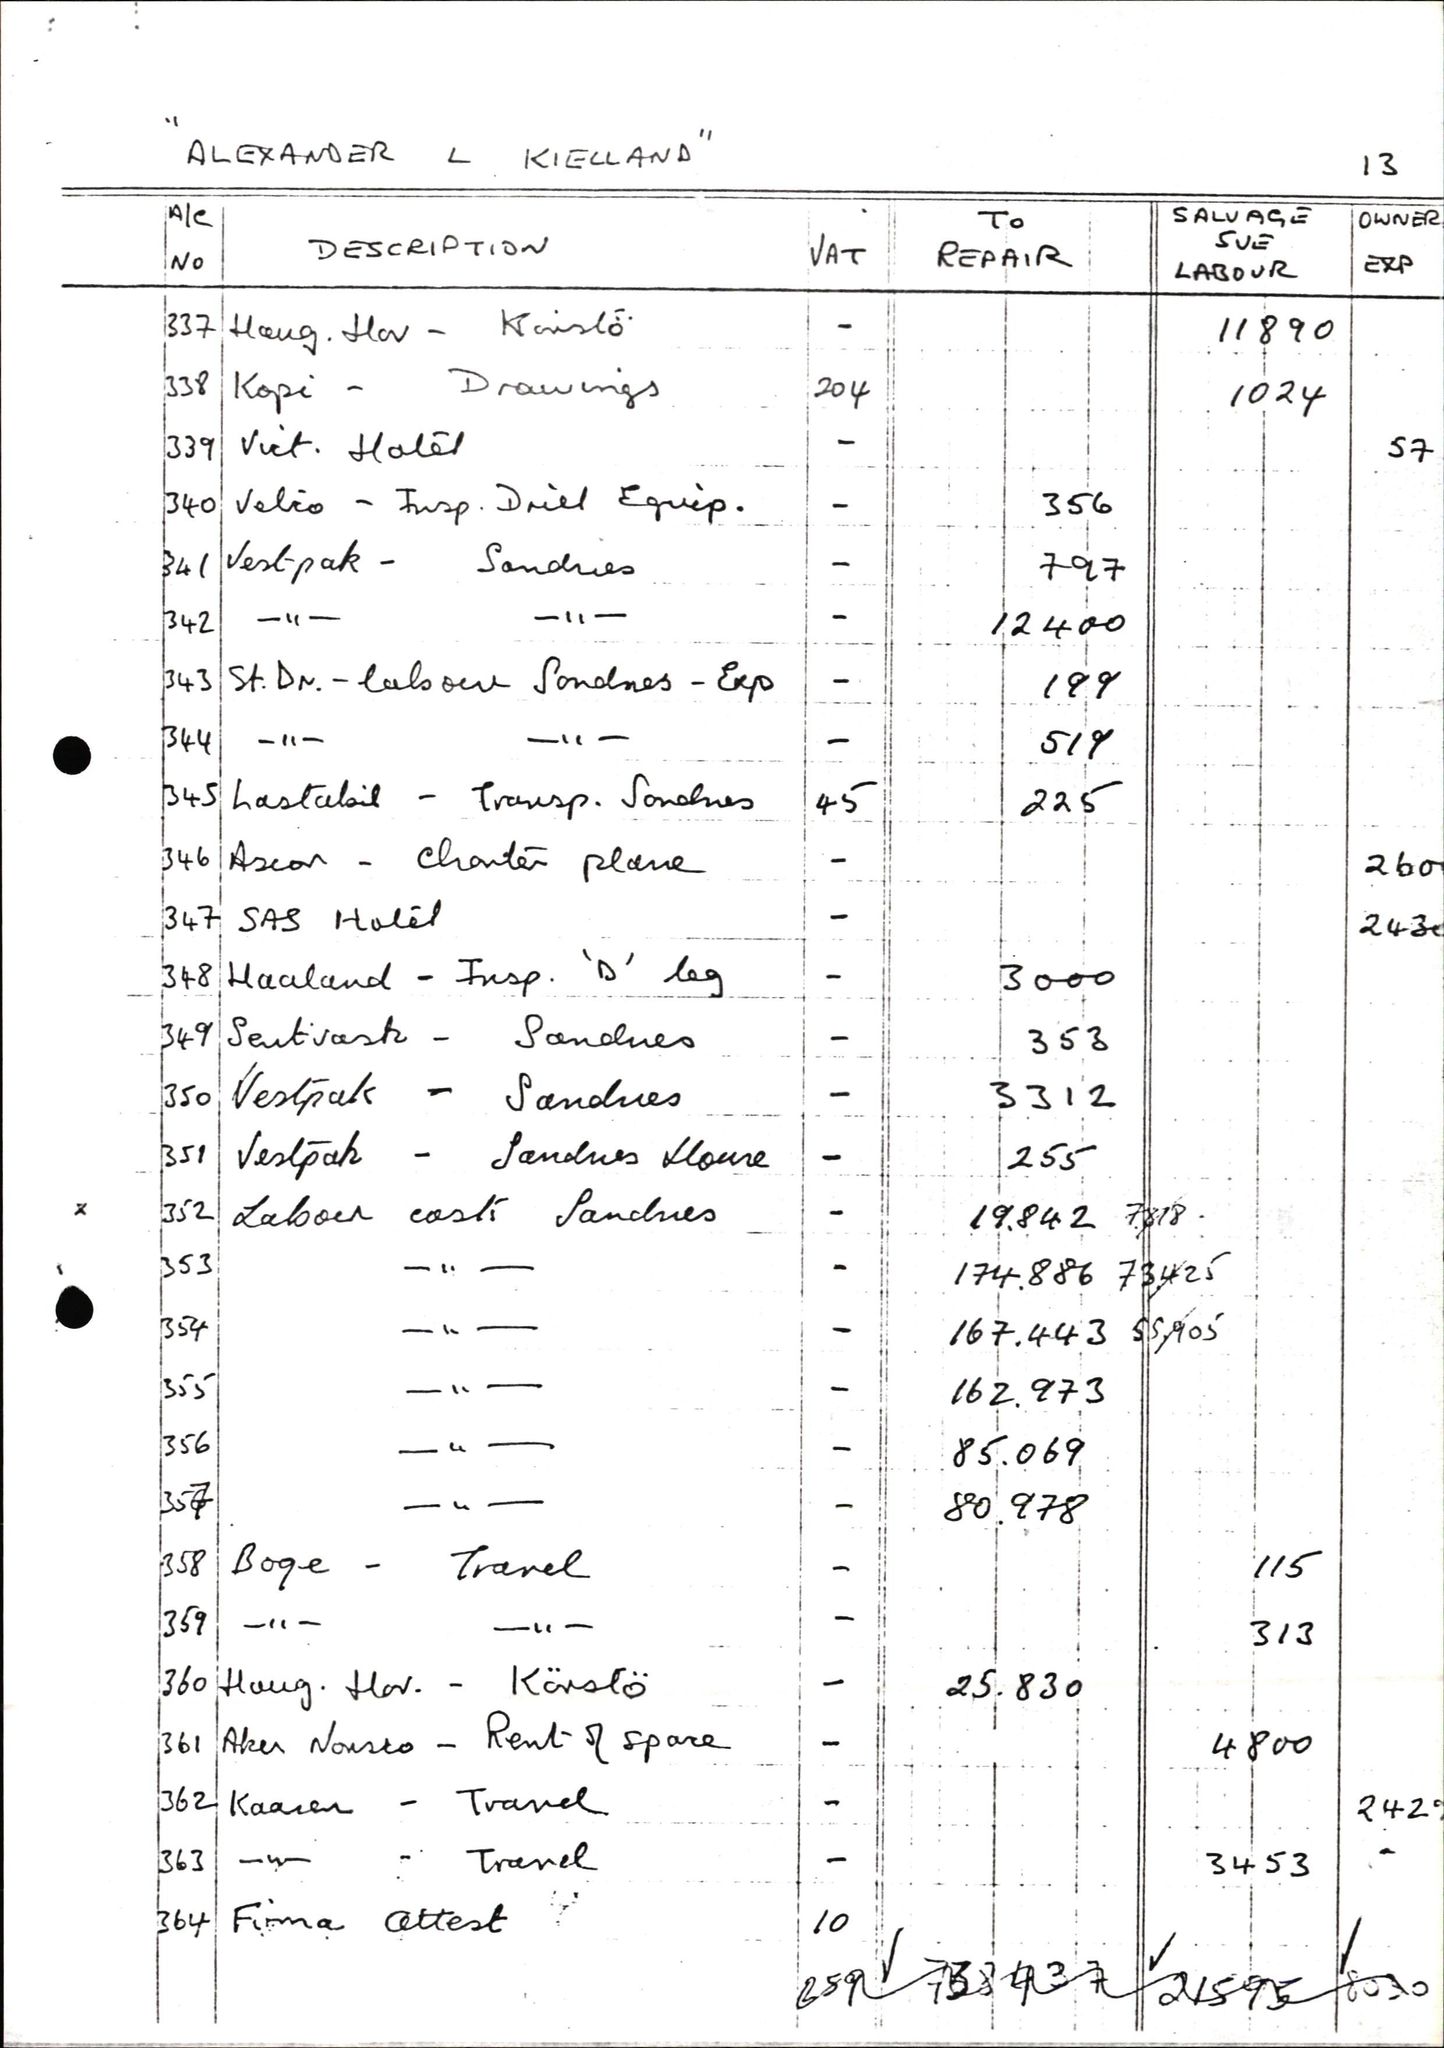 "ALEXANDER L KIELLAND"
13
A/C NO DESCRIPTION VAT TO REPAIR SALVAGE SUE LABOUR OWNER EXP
337 Haug. Hov - Körstö - 11890
338 Kopi - Drawings 204 1024
339 Vict. Hotel - 57
340 - Insp. Drill Equip. - 356
341 Vestpak - Sandnes - 797
342 —"— —"— - 12400
343 St. Dr. - labour Sandnes - Exp - 199
344 —"— —"— - 519
345 Lastabil - Transp. Sandnes 45 225
346 - Charter plane - 260
347 SAS Hotel - 243
348 Haaland - Insp. 'D' leg - 3000
349 - Sandnes - 353
350 Vestpak - Sandnes - 3312
351 Vestpak - Sandnes House - 255
x 352 Labour costs Sandnes - 19.842 7318
353 —"— - 174.886 73.425
354 —"— - 167.443 55.905
355 —"— - 162.973
356 —"— - 85.069
357 —"— - 80.978
358 Boge - Travel - 115
359 —"— —"— - 313
360 Haug. Hov. - Körstö - 25.830
361 Aker Norsco - Rent of space - 4800
362 Kaasen - Travel - 2429
363 —"— - Travel - 3453 -
364 Firma attest 10
259 738437 21595 8030